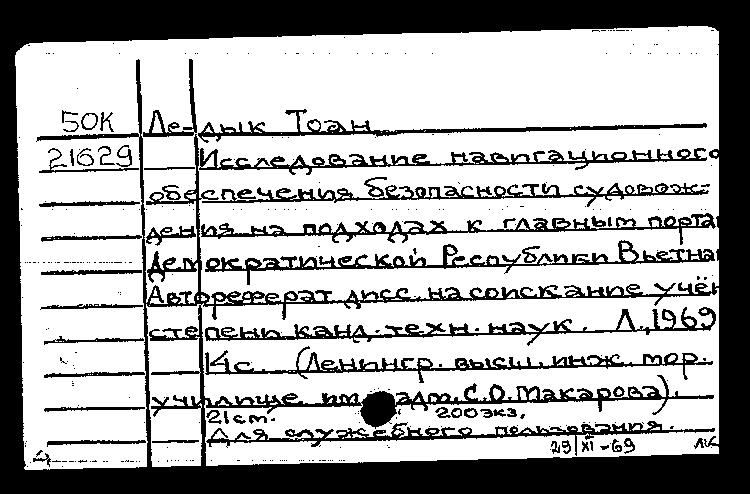 50К Ле-дык Тоан
21629 Исследование навигационного
обеспечения безопасности судовож-
дения на подходах к главным порта
Демократической Республики Вьетна
Автореферат дисс. на соискание учён
степени канд. техн. наук. Л., 1969
14с. (Ленингр. высш. инж. мор.
училище им. адм. С.О. Макарова).
21 cm. 200 экз.
Для служебного пользования.
29/XI-69